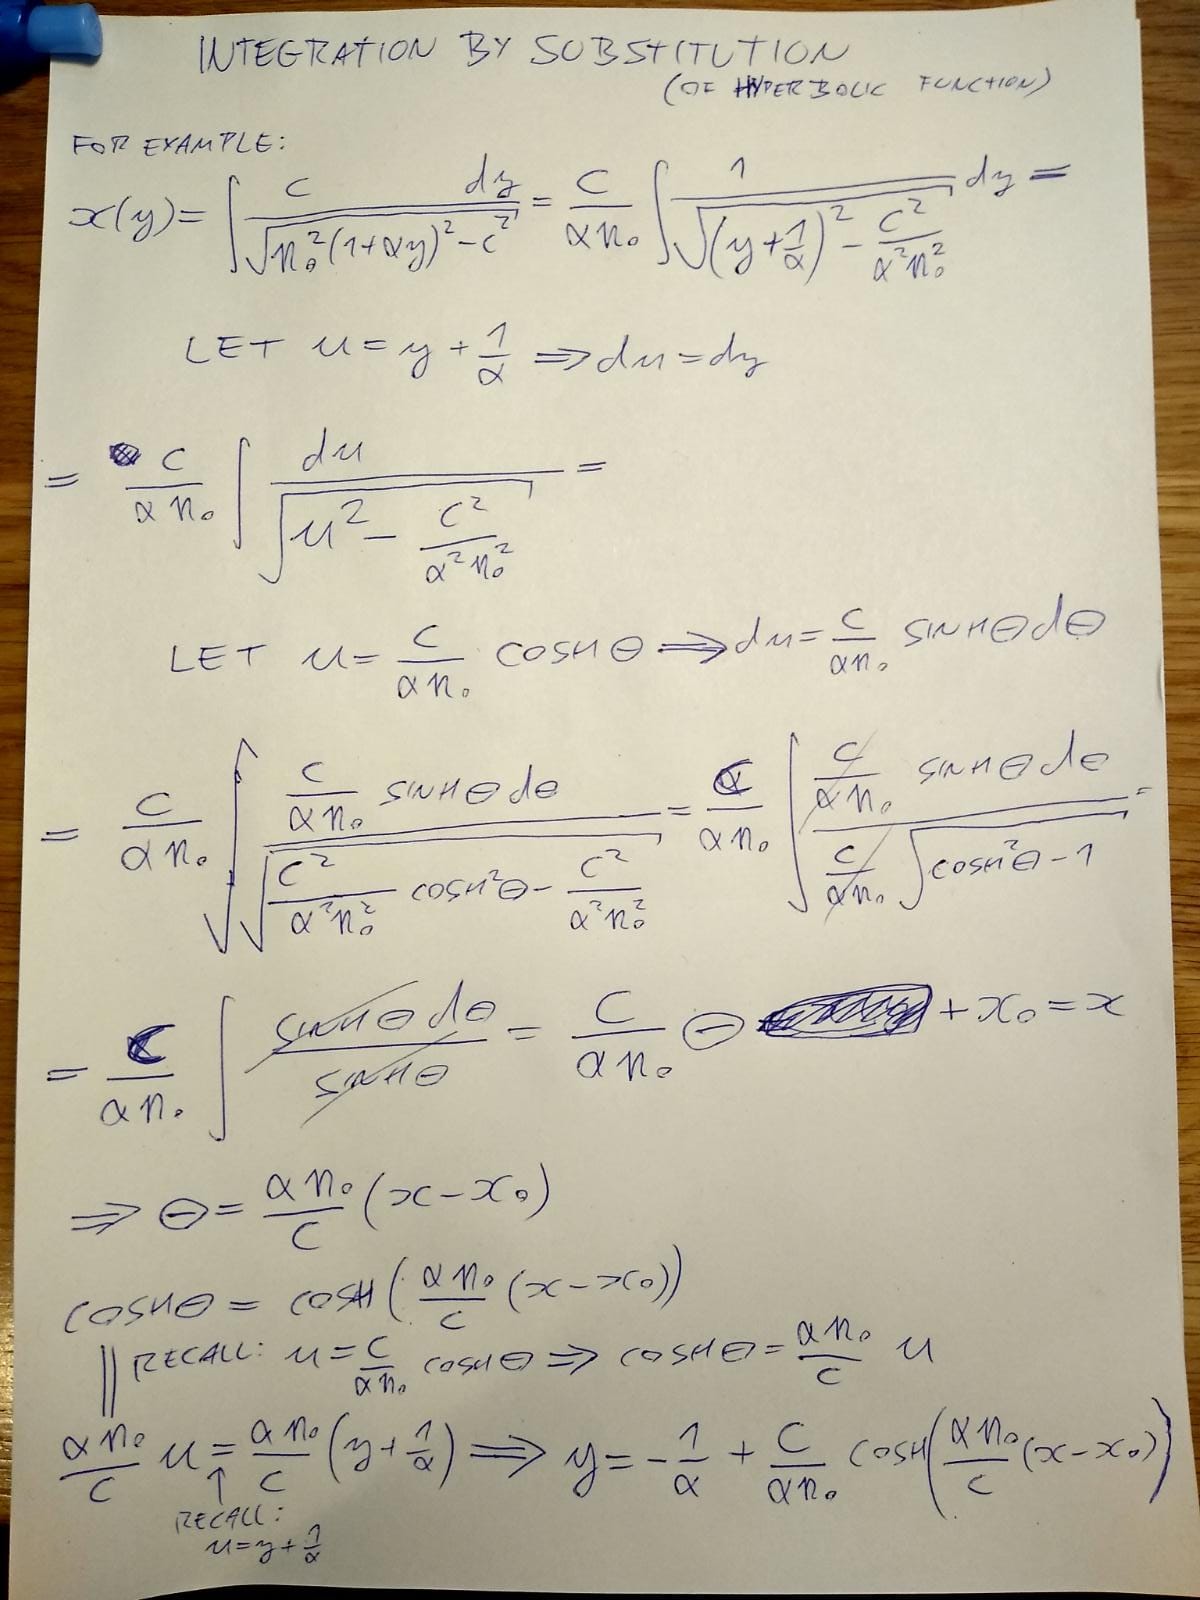 INTEGRATION BY SUBSTITUTION
(OF HYPERBOLIC FUNCTION)
FOR EXAMPLE:
x(y) = ∫ C dy / √(n₀²(1+αy)² − C²) = C/(αn₀) ∫ 1/√((y+1/α)² − C²/(α²n₀²)) dy =
LET u = y + 1/α ⇒ du = dy
= C/(αn₀) ∫ du/√(u² − C²/(α²n₀²)) =
LET u = C/(αn₀) COSH θ ⇒ du = C/(αn₀) SINH θ dθ
= C/(αn₀) ∫ (C/(αn₀) SINH θ dθ)/√(C²/(α²n₀²) COSH²θ − C²/(α²n₀²)) = C/(αn₀) ∫ (C/(αn₀) SINH θ dθ)/(C/(αn₀) √(COSH²θ − 1)) =
= C/(αn₀) ∫ SINH θ dθ / SINH θ = C/(αn₀) θ + x₀ = x
⇒ θ = αn₀/C (x − x₀)
COSH θ = COSH(αn₀/C (x − x₀))
|| RECALL: u = C/(αn₀) COSH θ ⇒ COSH θ = αn₀/C u
αn₀/C u = αn₀/C (y + 1/α) ⇒ y = −1/α + C/(αn₀) COSH(αn₀/C (x − x₀))
↑
RECALL:
u = y + 1/α